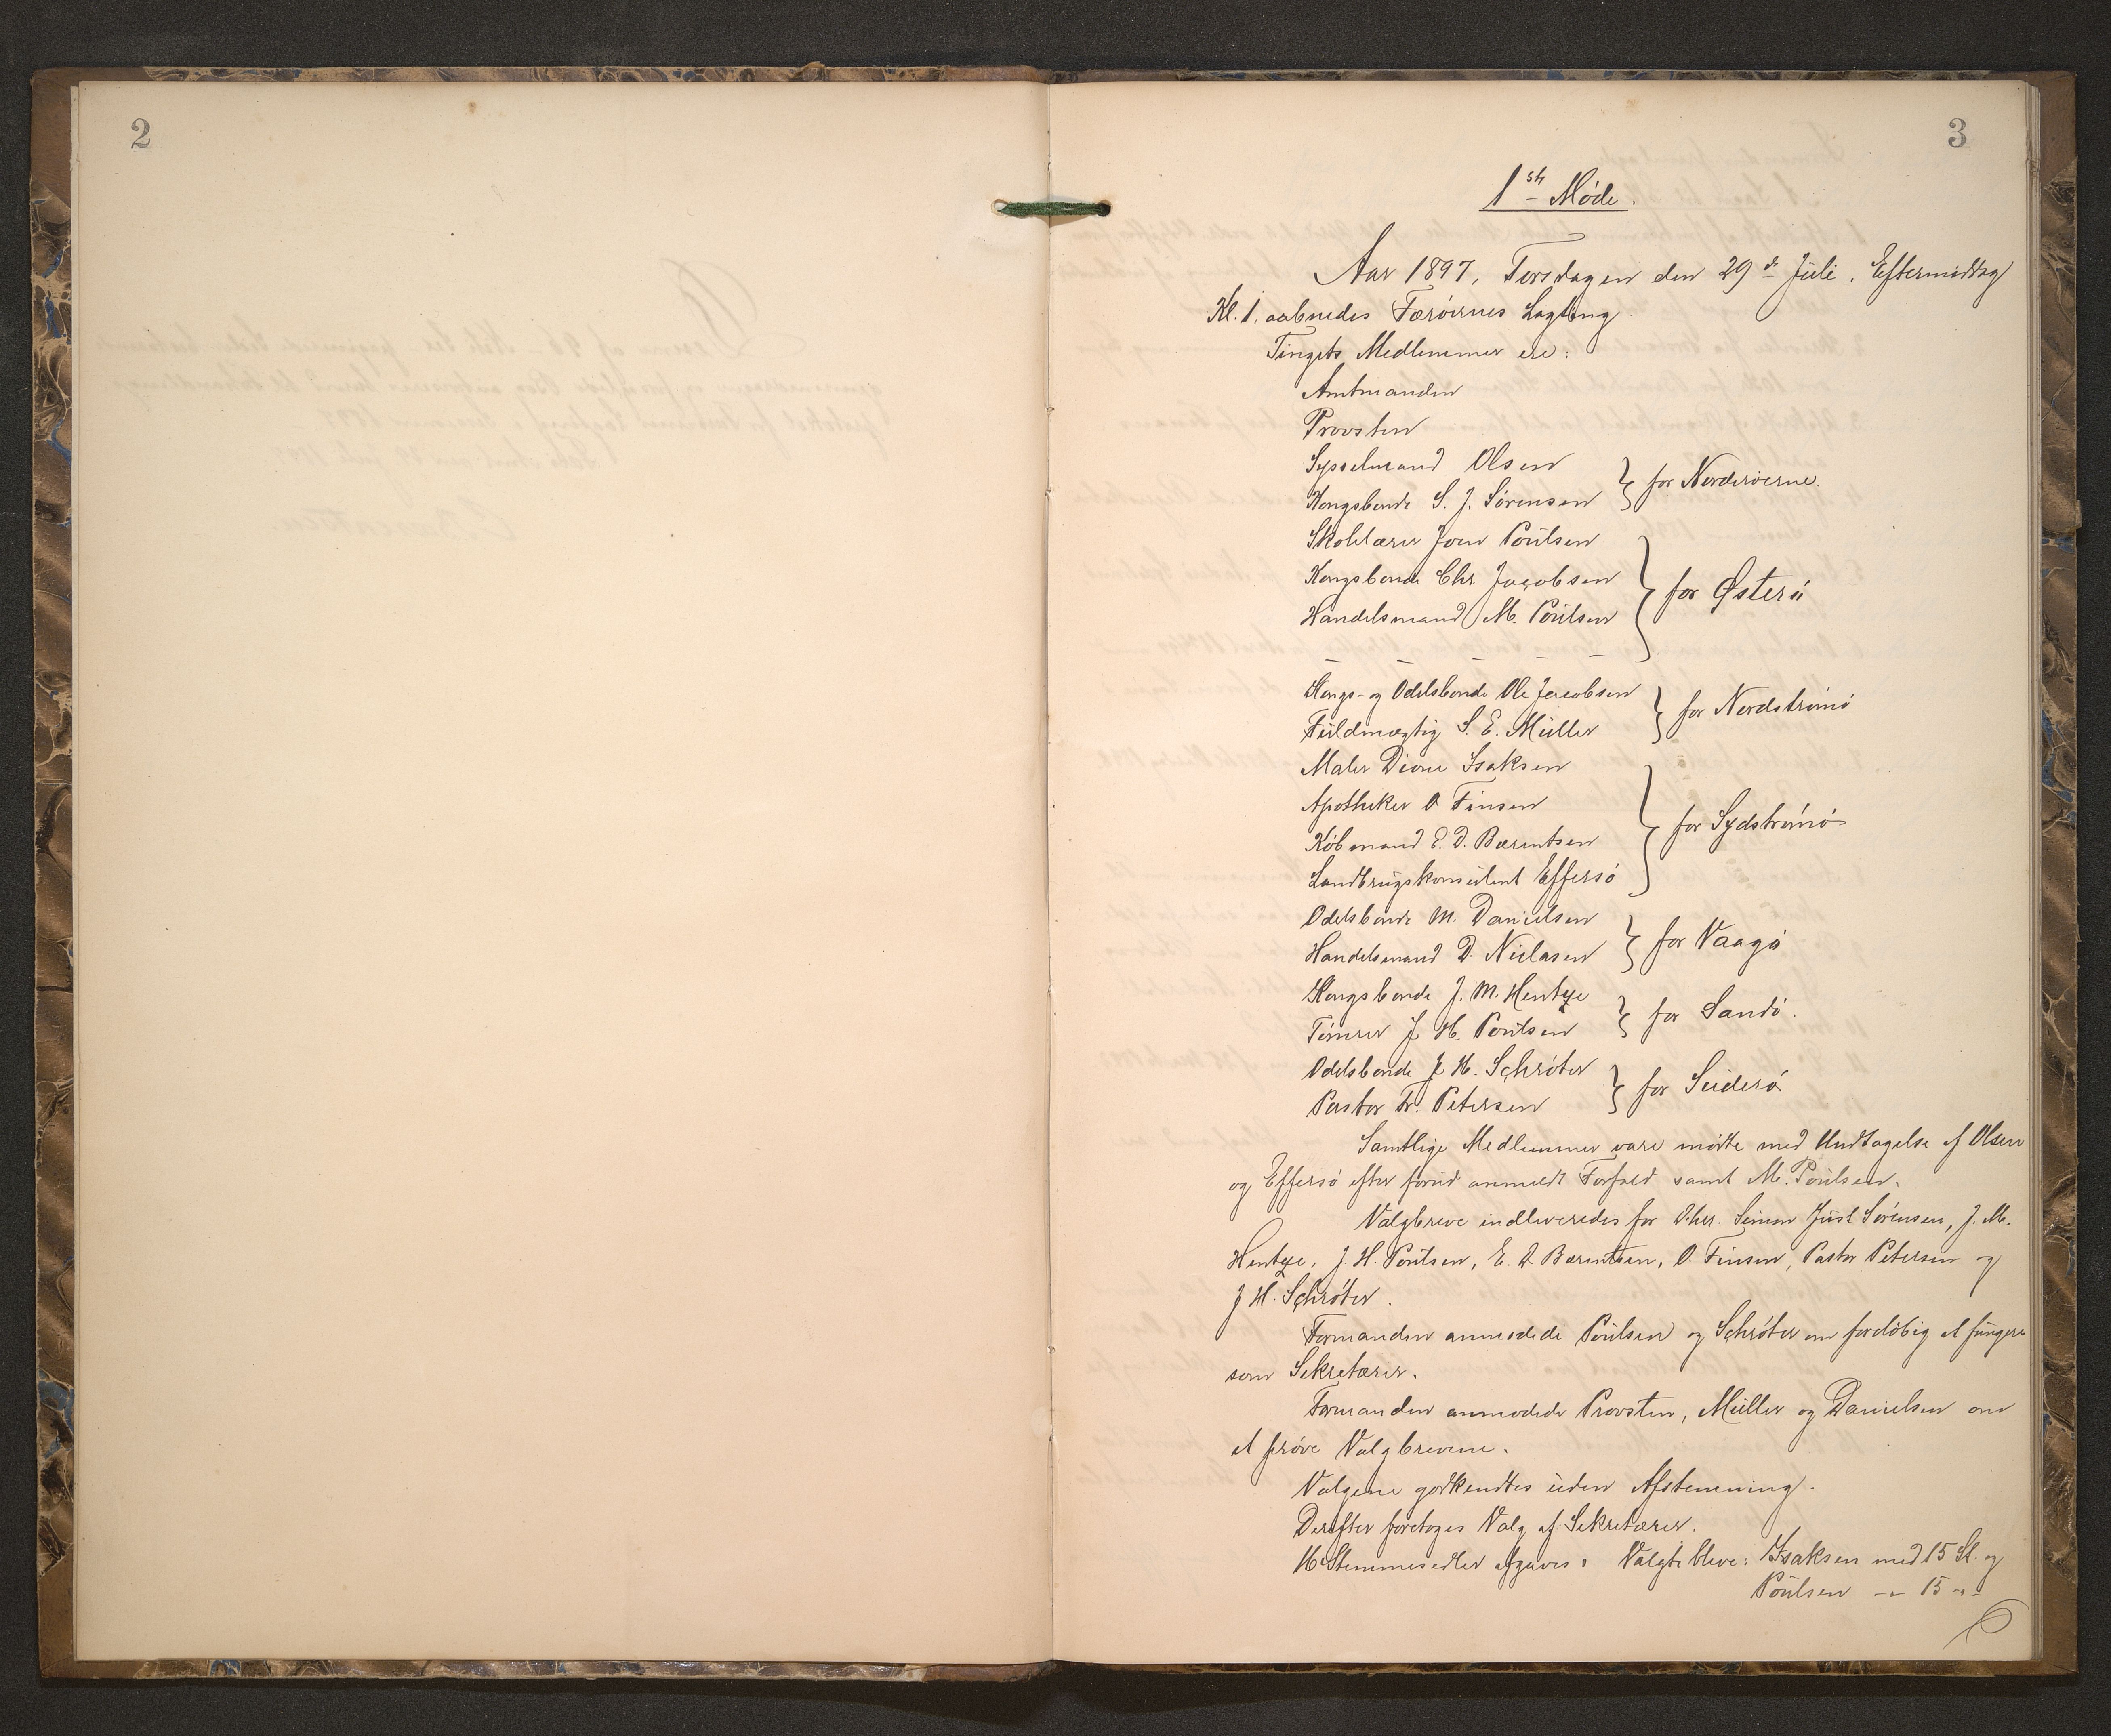 2
3
1ste Møde.
Aar 1897, Torsdagen den 29de Juli, Eftermiddag
Kl. 1, aabnedes Færøernes Lagting.
Tingets Medlemmer ere:
Amtmanden
Provsten
Sysselmand Olsen
Kongsbonde S. J. Sørensen } for Norderøerne.
Skolelærer Joen Poulsen
Kongsbonde Chr. Jacobsen
Handelsmand M. Poulsen } for Østerø
Kongs- og Odelsbonde Ole Jacobsen
Fuldmægtig S. E. Müller } for Nordstrømø
Maler Dione Isaksen
Apotheker O Finsen
Købmand E. D. Bærentsen
Landbrugskonsulent Effersø } for Sydstrømø
Odelsbonde M. Danielsen
Handelsmand D. Niclasen } for Vaagø
Kongsbonde J. M. Hentze
Tømrer J. H. Poulsen } for Sandø.
Odelsbonde J. H. Schrøter
Pastor Fr. Petersen } for Suderø
Samtlige Medlemmer vare mødte med Undtagelse af Olsen
og Effersø efter forud anmeldt Forfald samt M. Poulsen.
Valgbreve indleveredes for Dhrr. Simon Just Sørensen, J. M.
Hentze, J. H. Poulsen, E. D Bærentsen, O. Finsen, Pastor Petersen og
J H. Schrøter.
Formanden anmodede Poulsen og Schrøter om foreløbig at fungere
som Sekretærer.
Formanden anmodede Provsten, Müller og Danielsen om
at prøve Valgbrevene.
Valgene godkendtes uden Afstemning.
Derefter foretoges Valg af Sekretærer.
16 Stemmesedler afgaves. Valgte bleve: Isaksen med 15 St. og
Poulsen -"- 15 -"-